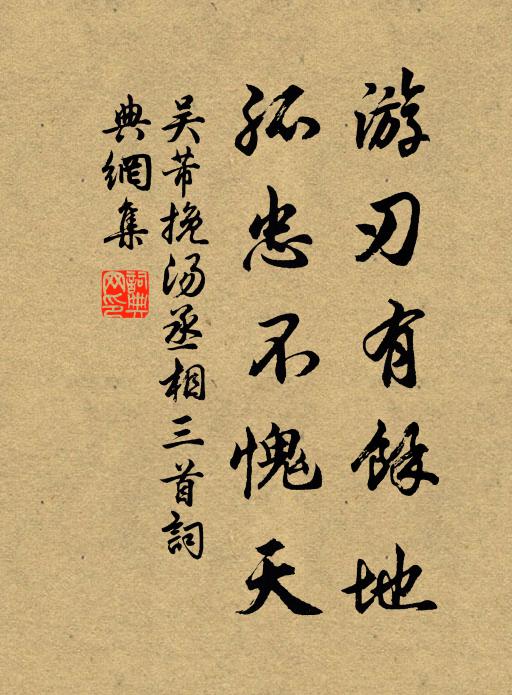 游刃有餘地
孤忠不愧天
吴芾挽汤丞相三首詞
典網集
詞典网印